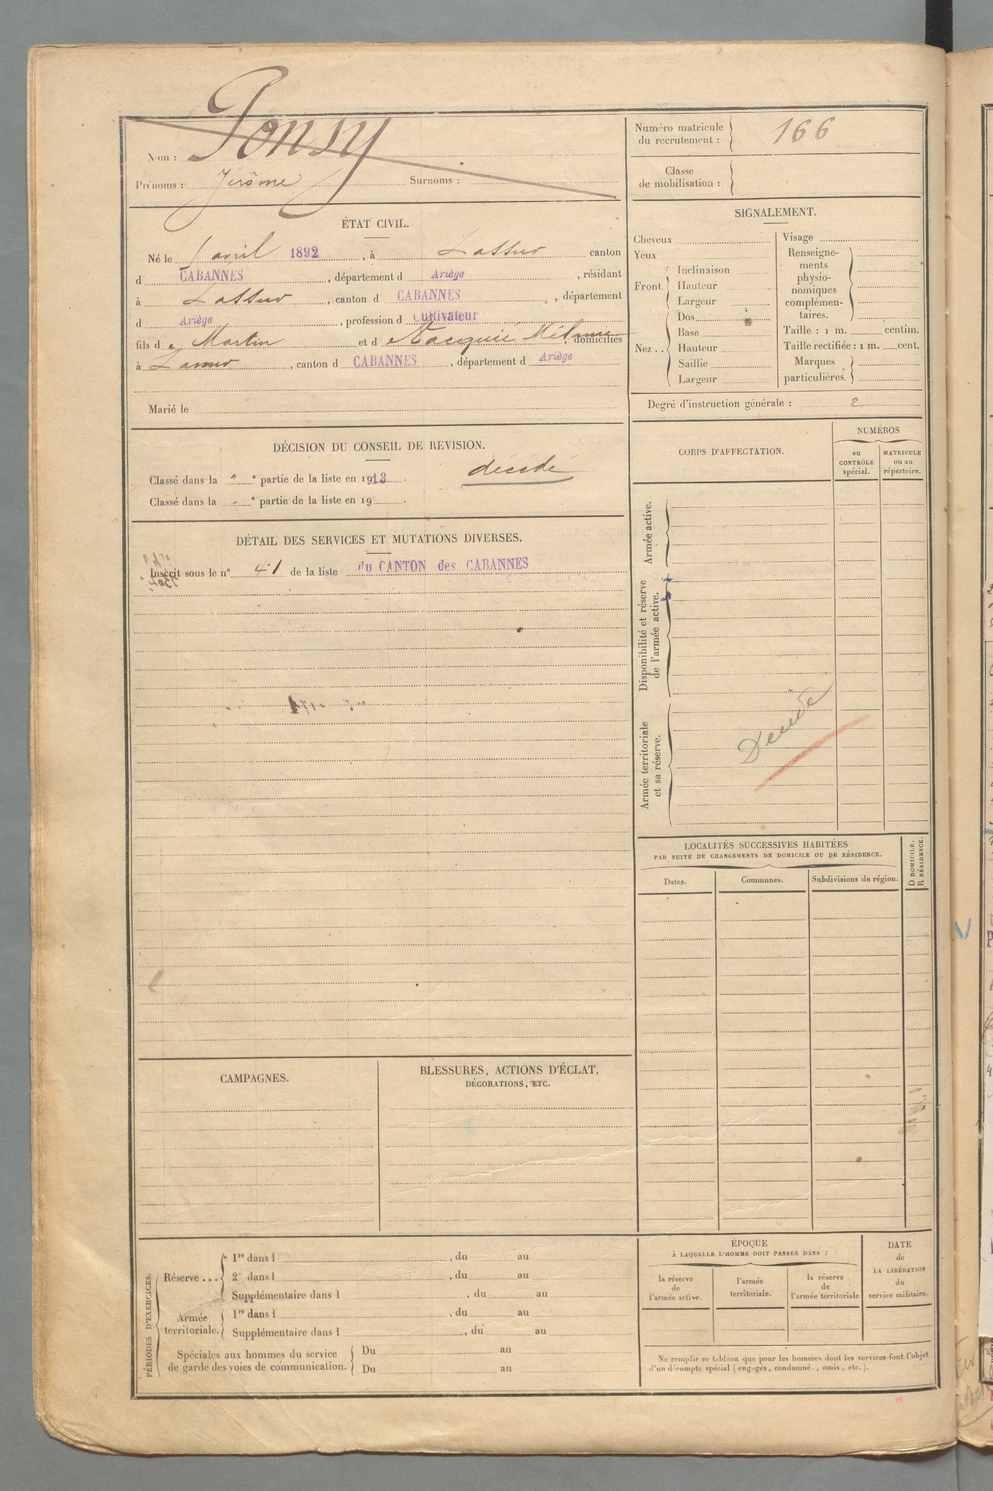 Nom : Ponsy
Prénoms : Jérôme Surnoms :
Numéro matricule du recrutement : 166
Classe de mobilisation :
ÉTAT CIVIL.
Né le 1 avril 1892, à Lassur canton
d CABANNES, département d Ariège, résidant
à Lassur, canton d CABANNES, département
d Ariège, profession d Cultivateur
fils d e Martin et d domiciliés
à Lassur, canton d CABANNES, département d Ariège
Marié le
DÉCISION DU CONSEIL DE REVISION.
Classé dans la " e partie de la liste en 1913. décédé
Classé dans la " e partie de la liste en 19
DÉTAIL DES SERVICES ET MUTATIONS DIVERSES.
Inscrit sous le n° 41 de la liste du CANTON des CABANNES
CAMPAGNES.
BLESSURES, ACTIONS D'ÉCLAT,
DÉCORATIONS, ETC.
PÉRIODES D'EXERCICES.
Réserve ... 1re dans l , du au
2e dans l , du au
Supplémentaire dans l , du au
Armée territoriale. 1re dans l , du au
Supplémentaire dans l , du au
Spéciales aux hommes du service Du au
de garde des voies de communication. Du au
SIGNALEMENT.
Cheveux
Yeux
Front. Inclinaison
Hauteur
Largeur
Nez .. Dos
Base
Hauteur
Saillie
Largeur
Visage
Renseigne-
ments
physio-
nomiques
complémen-
taires.
Taille : 1 m. centim.
Taille rectifiée : 1 m. cent.
Marques
particulières.
Degré d'instruction générale : 2
CORPS D'AFFECTATION.
NUMÉROS
au
CONTRÔLE
spécial.
MATRICULE
ou au
répertoire.
Armée active.
Disponibilité et réserve
de l'armée active.
Armée territoriale
et sa réserve.
Décédé
LOCALITÉS SUCCESSIVES HABITÉES
PAR SUITE DE CHANGEMENTS DE DOMICILE OU DE RÉSIDENCE.
Dates. Communes. Subdivisions de région.
D. DOMICILE.
R. RÉSIDENCE.
ÉPOQUE
À LAQUELLE L'HOMME DOIT PASSER DANS :
la réserve
de
l'armée active.
l'armée
territoriale.
la réserve
de
l'armée territoriale
DATE
de
LA LIBÉRATION
du
service militaire.
Ne remplir ce tableau que pour les hommes dont les services font l'objet
d'un décompte spécial (engagés, condamnés, omis, etc.).